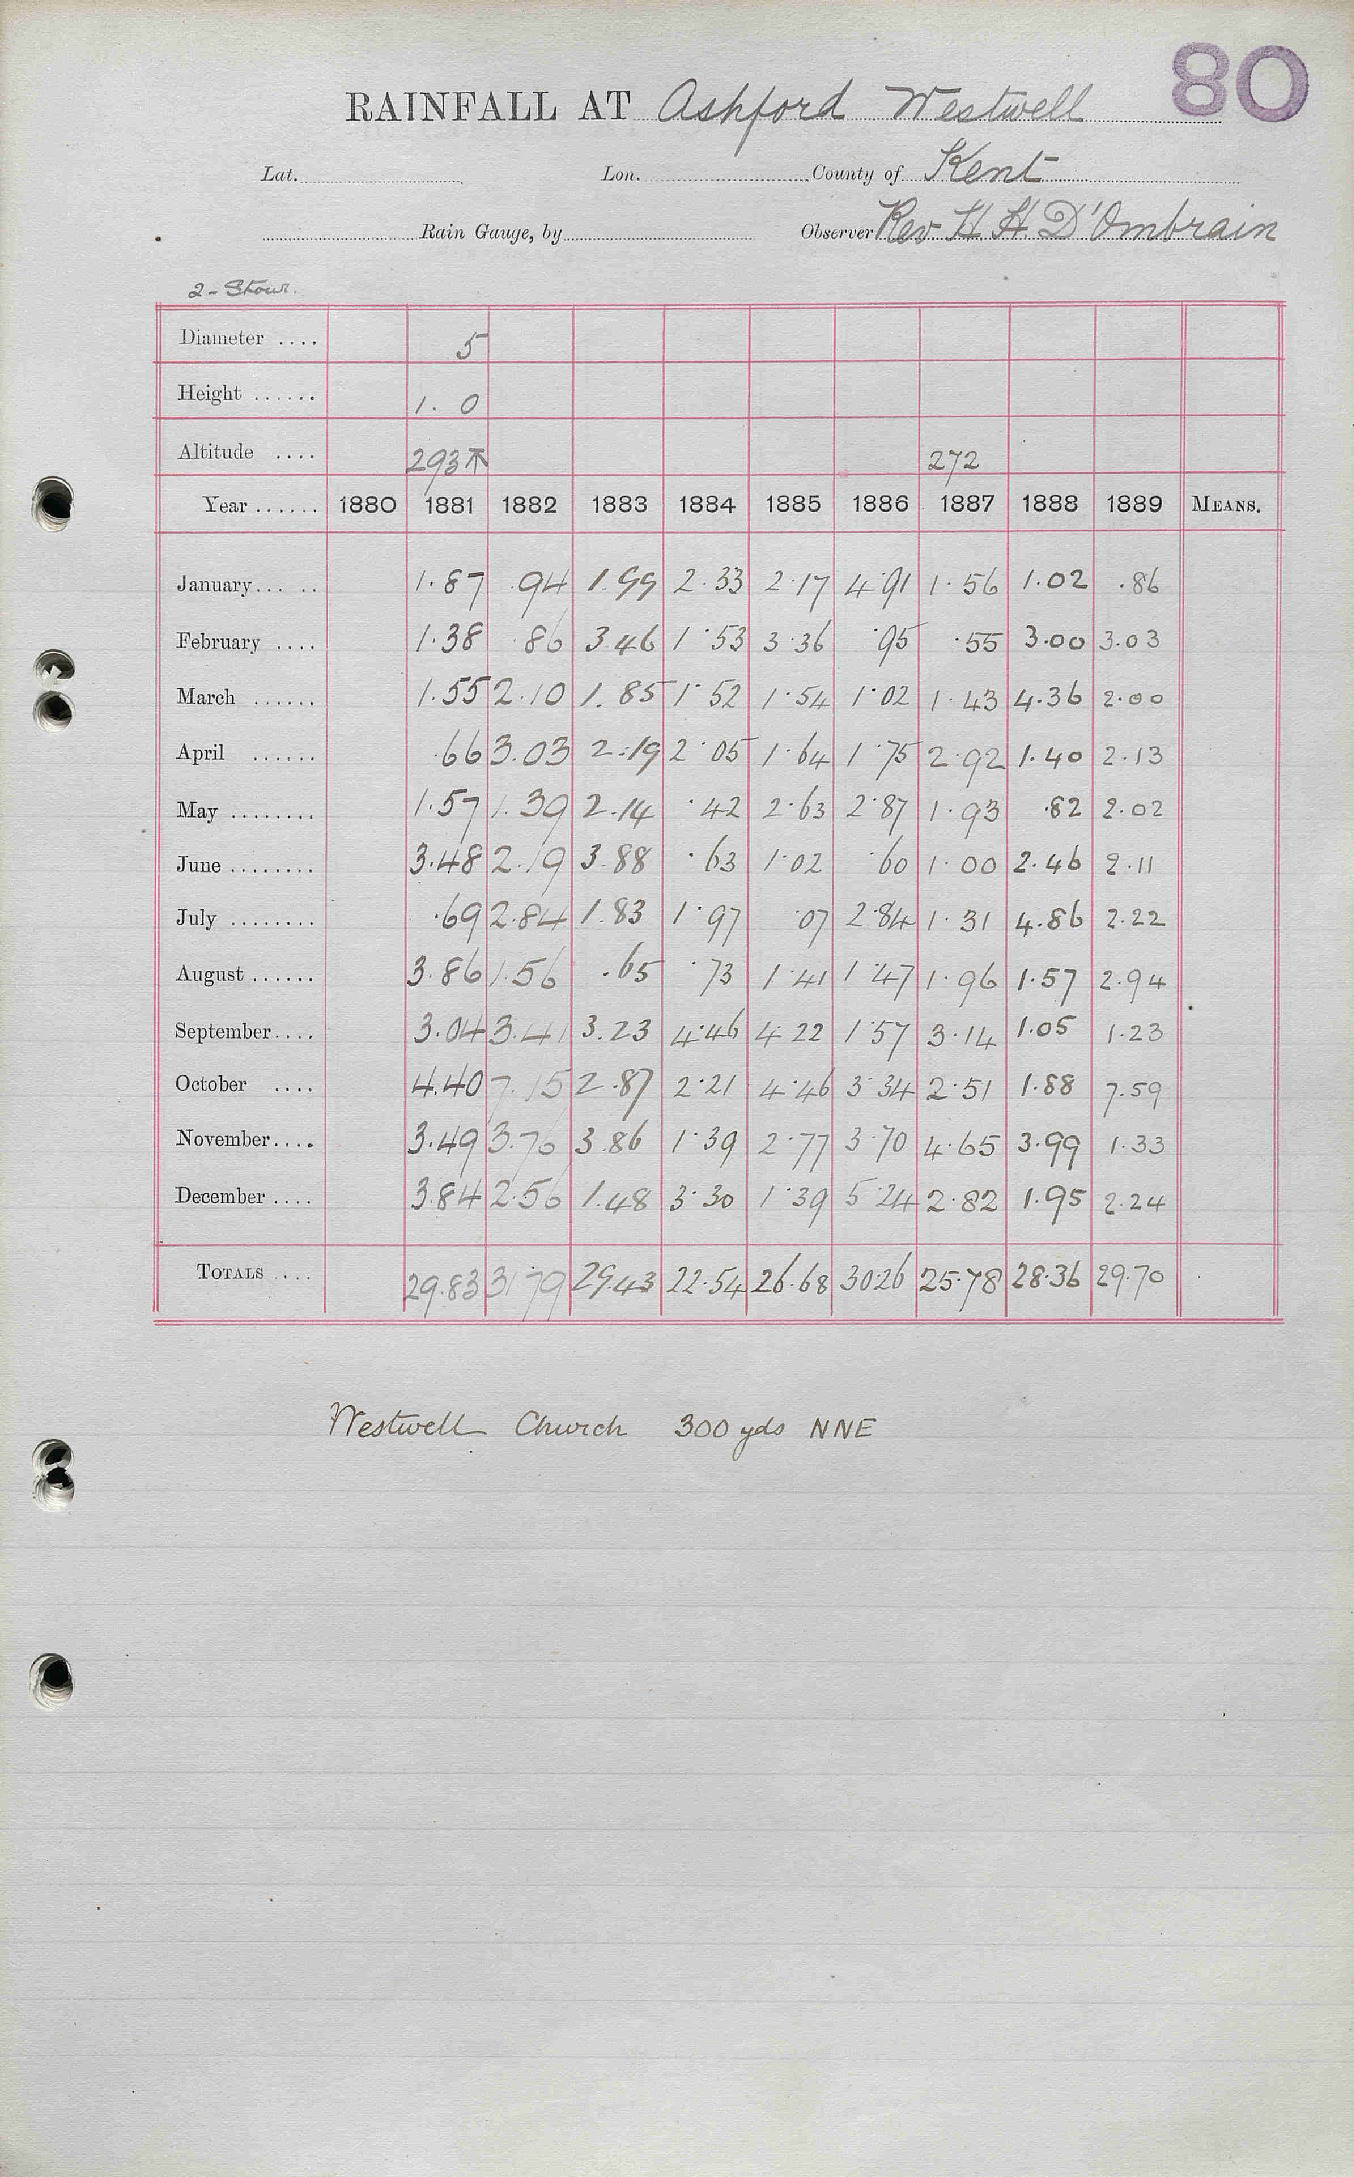 80
RAINFALL AT Ashford Westwell
Lat. Lon. County of Kent
Rain Gauge, by Observer Rev H H D'Ombrain
2 - Stour.
Diameter .... 5
Height ...... 1. 0
Altitude .... 293 ⊼ 272
Year ...... 1880 1881 1882 1883 1884 1885 1886 1887 1888 1889 MEANS.
January... .. 1.87 .94 1.99 2.33 2.17 4.91 1.56 1.02 .86
February .... 1.38 .86 3.46 1.53 3.36 .95 .55 3.00 3.03
March ...... 1.55 2.10 1.85 1.52 1.54 1.02 1.43 4.36 2.00
April ...... .66 3.03 2.19 2.05 1.64 1.75 2.92 1.40 2.13
May ........ 1.57 1.39 2.14 .42 2.63 2.87 1.93 .82 2.02
June ........ 3.48 2.19 3.88 .63 1.02 .60 1.00 2.46 2.11
July ........ .69 2.84 1.83 1.97 .07 2.84 1.31 4.86 2.22
August ...... 3.86 1.56 .65 .73 1.41 1.47 1.96 1.57 2.94
September.... 3.04 3.41 3.23 4.46 4.22 1.57 3.14 1.05 1.23
October .... 4.40 7.15 2.87 2.21 4.46 3.34 2.51 1.88 7.59
November.... 3.49 3.76 3.86 1.39 2.77 3.70 4.65 3.99 1.33
December .... 3.84 2.56 1.48 3.30 1.39 5.24 2.82 1.95 2.24
TOTALS .... 29.83 31.79 29.43 22.54 26.68 30.26 25.78 28.36 29.70
Westwell Church 300 yds NNE